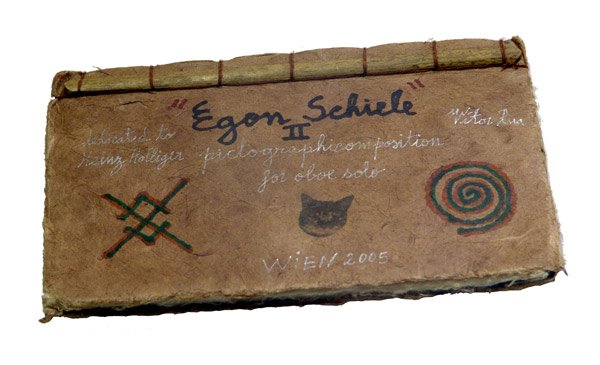 "Egon Schiele"
II
dedicated to
Heinz Holliger
pictographicomposition
for oboe solo
Victor Rua
WIEN 2005